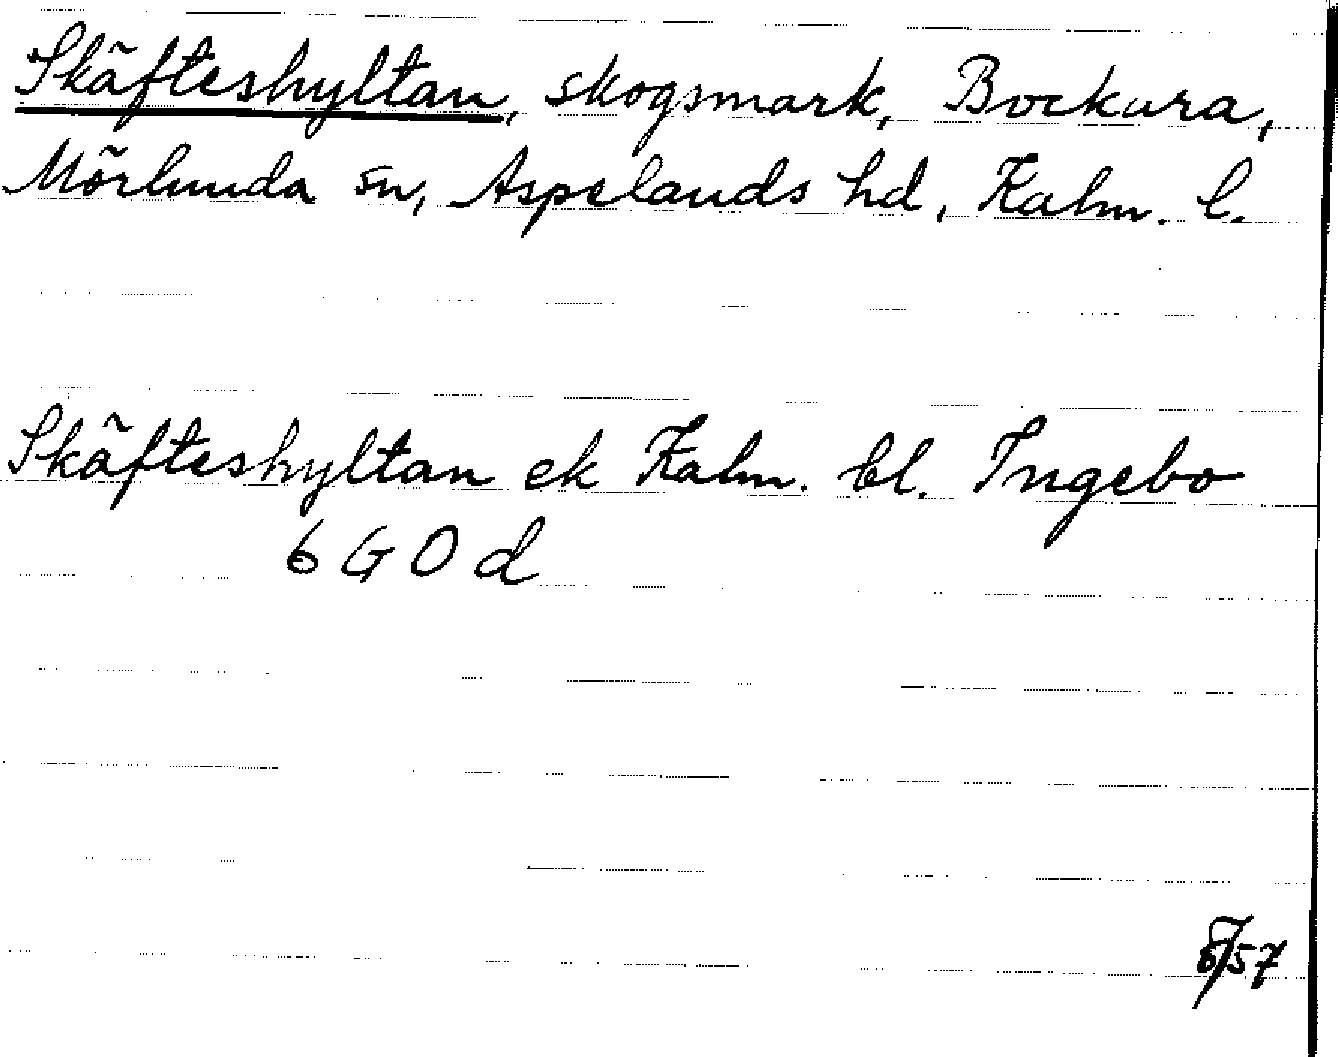 Skäfteshyltan, skogsmark, Bockara,
Mörlunda sn, Aspelands hd, Kalm. l.
Skäfteshyltan ek Kalm. bl. Ingebo
6 G O d